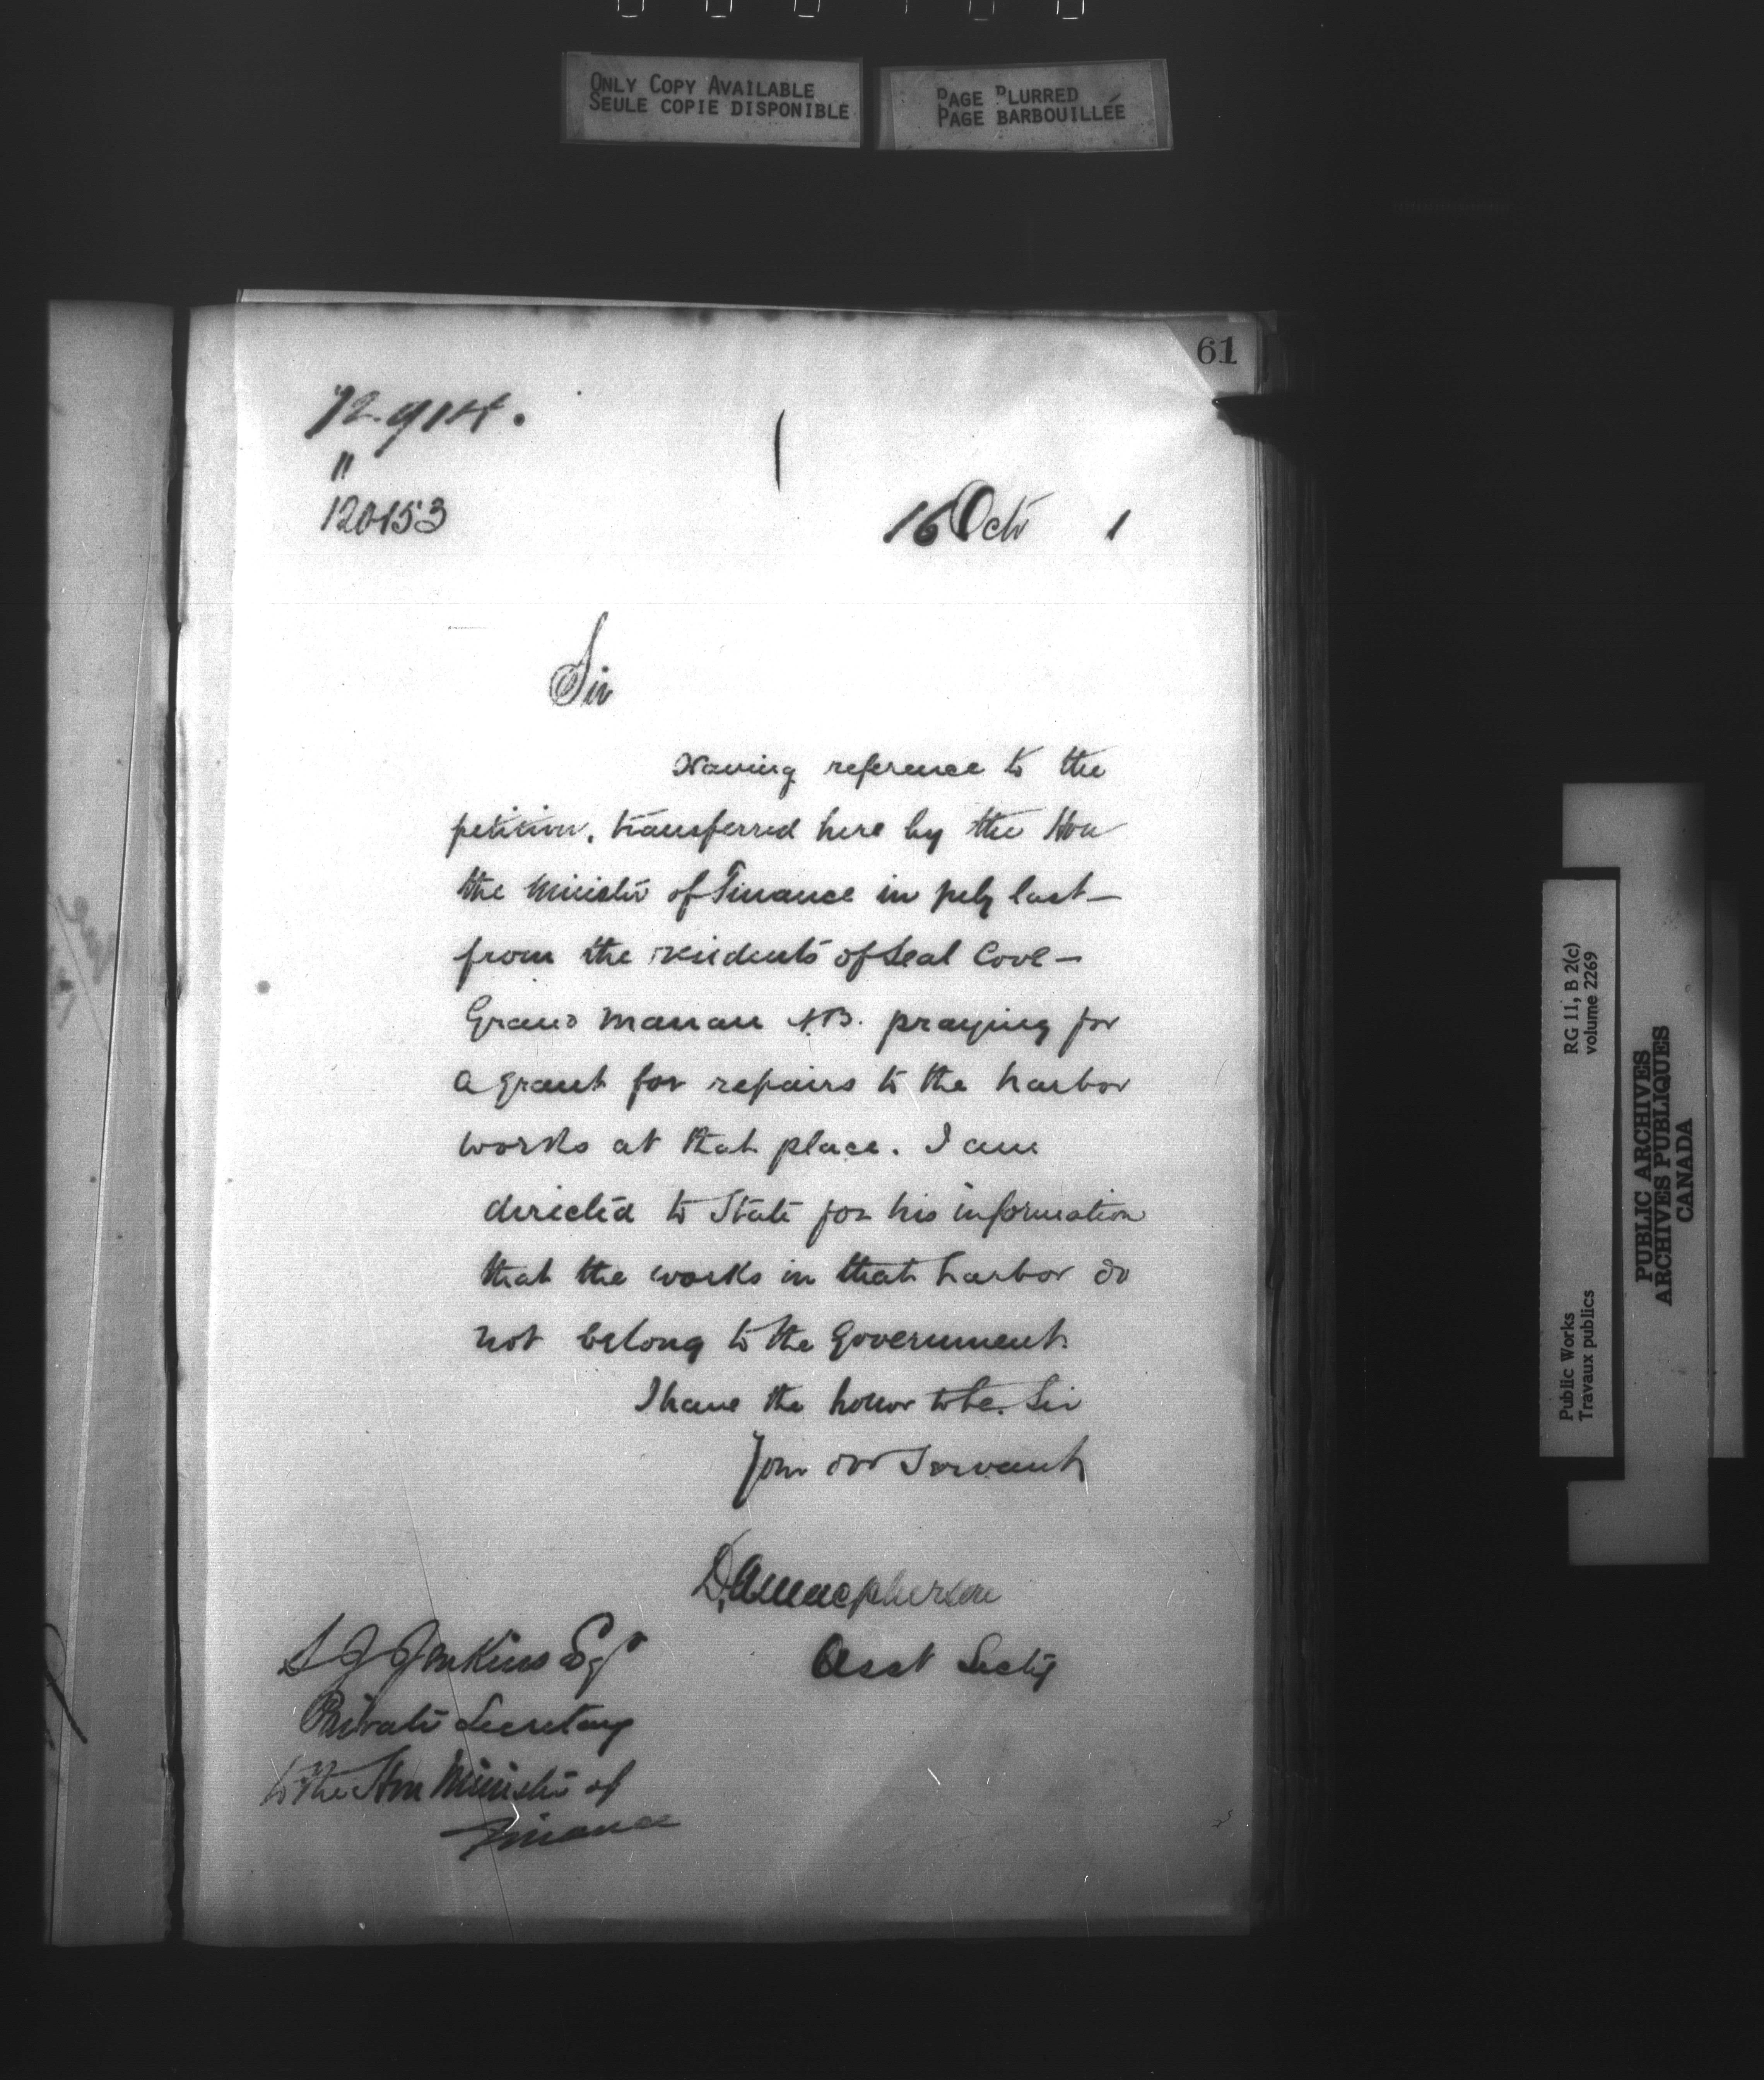 ONLY COPY AVAILABLE
SEULE COPIE DISPONIBLE
PAGE BLURRED
PAGE BARBOUILLÉE
61
"
120153
16 Octr 1
Sir
Having reference to the
petition, transferred here by the Hon
the Minister of Finance in July last—
from the residents of Seal Cove—
Grand Manan N.B. praying for
a grant for repairs to the harbor
works at that place. I am
directed to State for his information
that the works in that harbor do
not belong to the Government.
I have the honor to be. Sir
Your obt Servant
D. A. Macpherson
Asst Secty
S J Jenkins Esqr
Private Secretary
to the Hon Minister of
Finance
RG 11, B 2(c)
volume 2269
Public Works
Travaux publics
PUBLIC ARCHIVES
ARCHIVES PUBLIQUES
CANADA